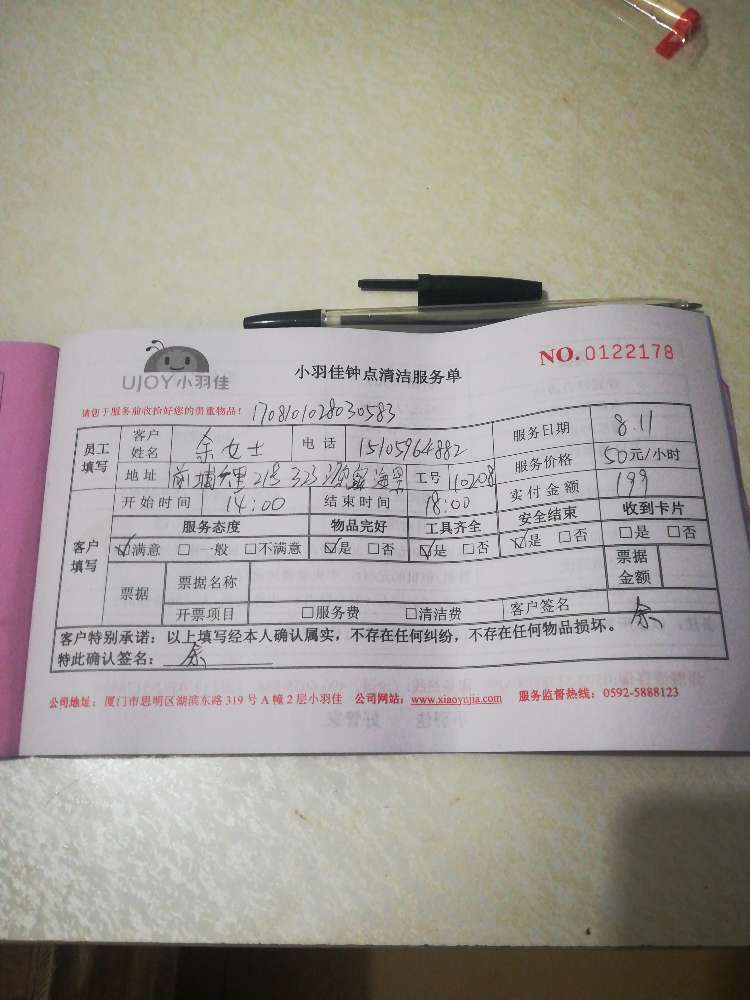 UJOY小羽佳
小羽佳钟点清洁服务单
NO.0122178
请您于服务前收拾好您的贵重物品! 1708101028030583
员工填写 客户姓名 余女士 电话 15105964882 服务日期 8.11
地址 工号 110208 服务价格 50元/小时
开始时间 14:00 结束时间 18:00 实付金额 199
客户填写 服务态度 物品完好 工具齐全 安全结束 收到卡片
☑满意 □一般 □不满意 ☑是 □否 ☑是 □否 ☑是 □否 □是 □否
票据 票据名称 票据金额
开票项目 □服务费 □清洁费 客户签名 余
客户特别承诺:以上填写经本人确认属实,不存在任何纠纷,不存在任何物品损坏。
特此确认签名: 余
公司地址:厦门市思明区湖滨东路 319 号 A 幢 2 层小羽佳 公司网站:www.xiaoyujia.com 服务监督热线:0592-5888123